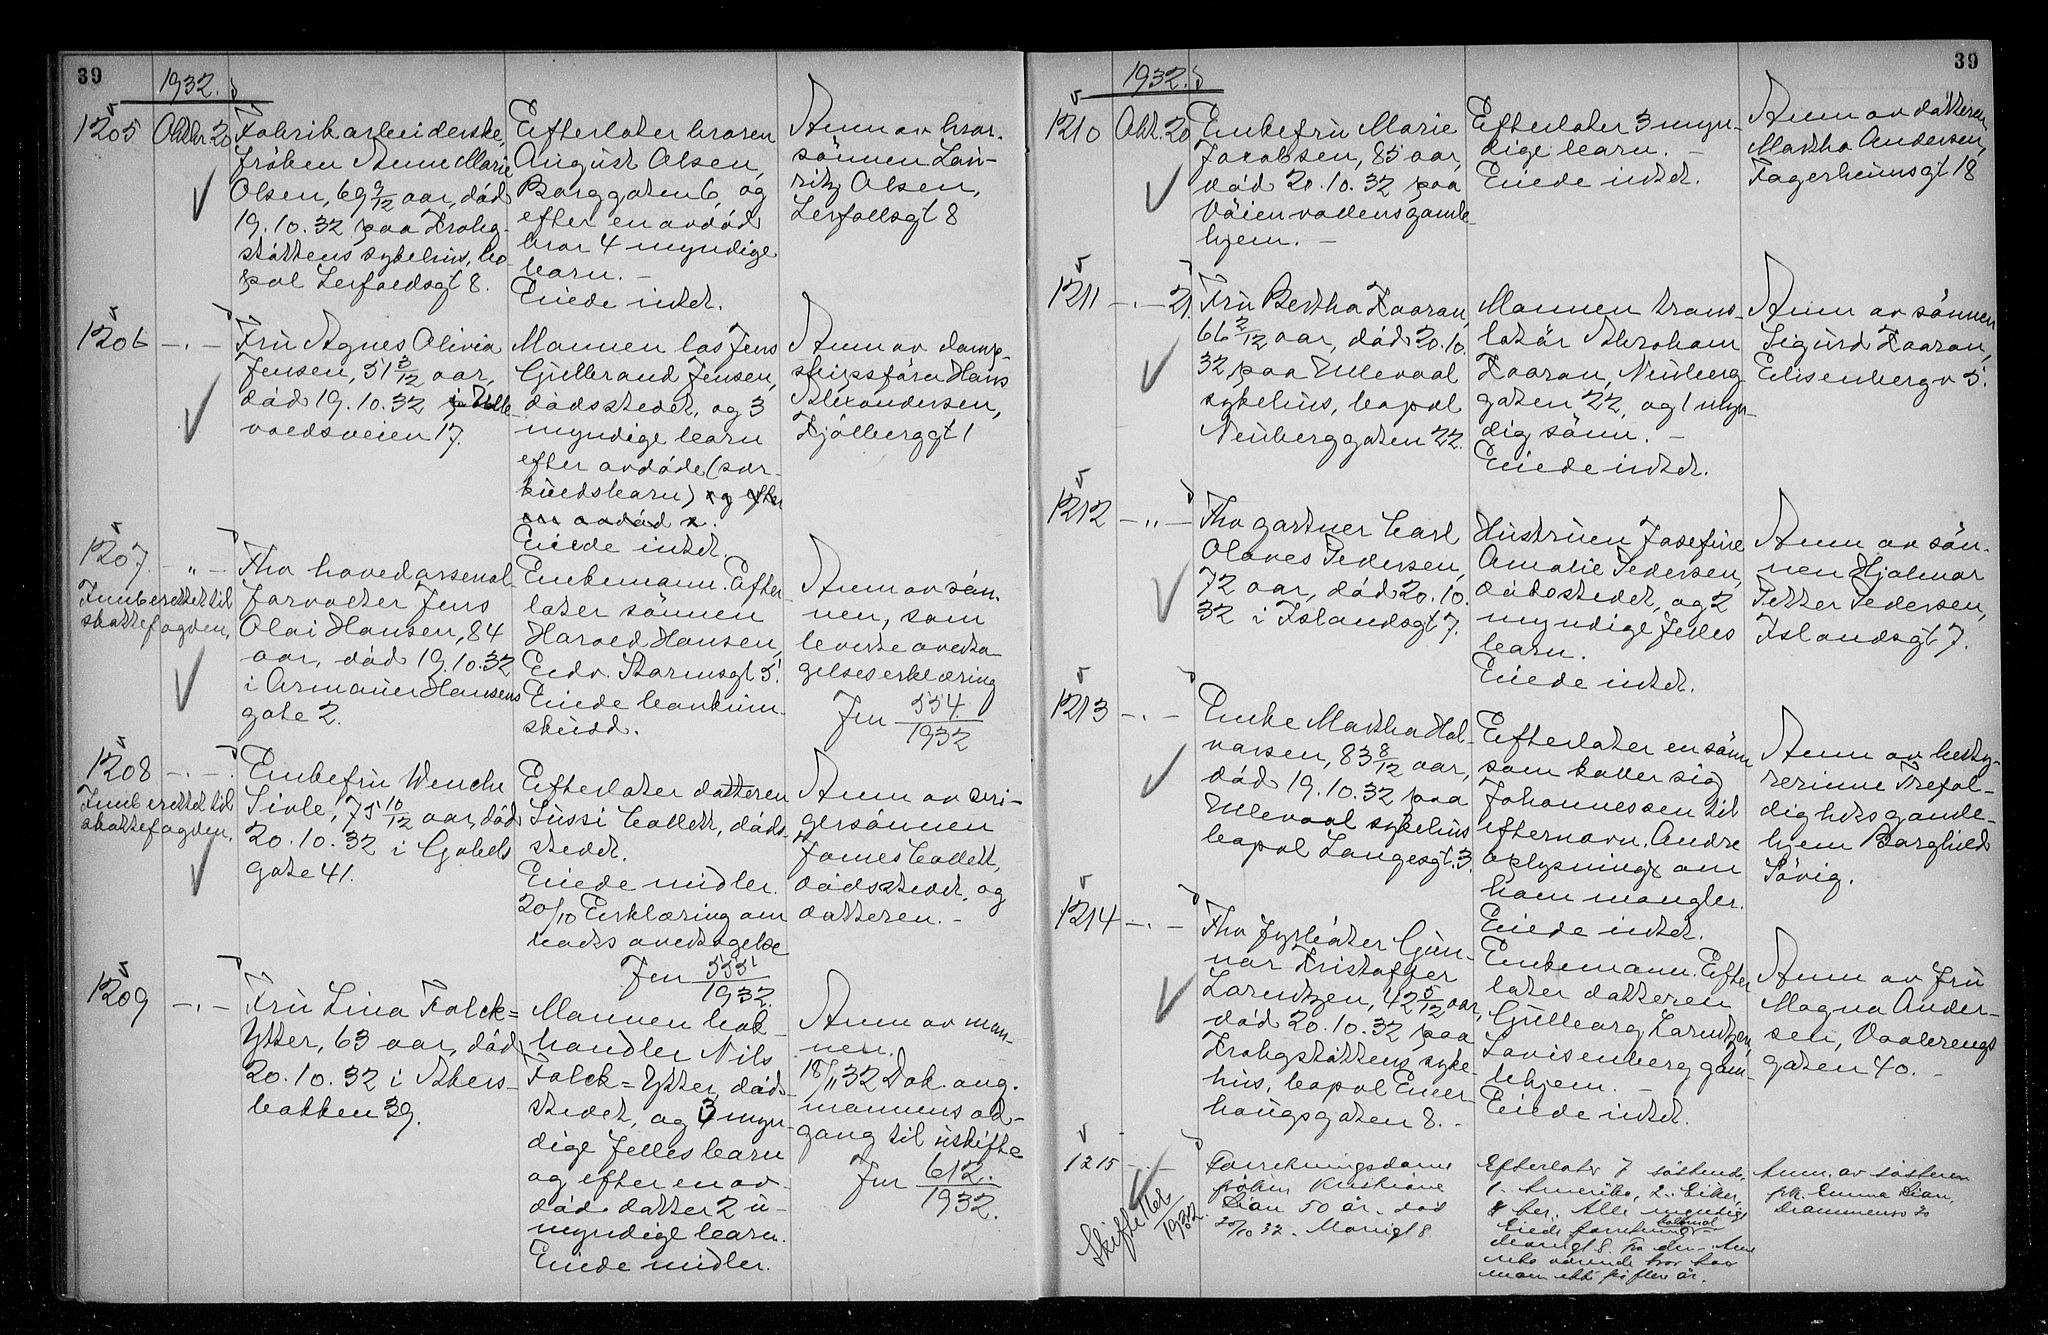 39
1932.
1205 Oktbr 20
Fabrikarbeiderske,
frøken Anne Marie
Olsen, 69 9/12 aar, död
19.10.32 paa Krohg-
støttens sykehus, bo-
pæl Lerfaldsgt 8.
Efterlater broren
August Olsen,
Borggaten 6, og
efter en avdød
bror 4 myndige
barn. –
Eiede intet.
Anm av bror-
sønnen Lau-
ritz Olsen,
Lerfaldsgt 8
1206 – " –
Fru Agnes Olivia
Jensen, 51 3/12 aar,
död 19.10.32 i Ulle-
vaalsveien 17.
Mannen los Jens
Gulbrand Jensen,
dødsstedet, og 3
myndige barn
efter avdøde (sær-
kuldsbarn) og efter
en avdød x.
Eiede intet.
Anm av damp-
skipsfører Hans
Alexandersen,
Kjølberggt 1
1207. – " –
Innberettet til
skattefogden.
Fhv hovedarsenal-
forvalter Jens
Olai Hansen, 84
aar, död 19.10.32
i Armauer Hansens
gate 2.
Enkemann. Efter-
later sønnen
Harald Hansen,
Edv. Stormsgt 5.
Eiede bankinn-
skudd.
Anm av søn-
nen, som
leverte overta-
gelseserklæring
Jnr 554/1932
1208 – " –
Innberettet til
skattefogden.
Enkefru Wenche
Sivle, 75 10/12 aar, död
20.10.32 i Gabels
gate 41.
Efterlater datteren
Sussi Collett, døds-
stedet.
Eiede midler.
20/10 Erklæring om
boets overtagelse
Jnr 555/1932
Anm av svi-
gersønnen
James Collett,
dødsstedet, og
datteren. –
1209 – " –
Fru Lina Falck=
Ytter, 63 aar, död
20.10.32 i Akers-
bakken 39.
Mannen bok-
handler Nils
Falck=Ytter, døds-
stedet, og 3 myn-
dige felles barn
og efter en av-
død datter 2 u-
myndige barn.
Eiede midler.
Anm av man-
nen.
18/11 32 Dok. ang.
mannens ad-
gang til uskifte
Jnr 612./1932.
39
1932.
1210 Okt. 20
Enkefru Marie
Jacobsen, 85 aar,
död 20.10.32 paa
Vøienvollens gamle-
hjem. –
Efterlater 3 myn-
dige barn. –
Eiede intet.
Anm av datteren
Martha Andersen,
Fagerheimsgt 18
1211 – " – 21.
Fru Bertha Kaaran,
66 2/12 aar, död 20.10.
32 paa Ullevaal
sykehus, bopæl
Neuberggaten 22.
Mannen trans-
latør Abraham
Kaaran, Neuberg-
gaten 22, og 1 myn-
dig sønn. –
Eiede intet.
Anm av sønnen
Sigurd Kaaran,
Elisenbergv 5.
1212 – " –
Fhv gartner Carl
Olaves Pedersen,
72 aar, död 20.10.
32 i Islandsgt 7.
Hustruen Josefine
Amalie Pedersen,
dødsstedet, og 2
myndige felles
barn.
Eiede intet.
Anm av søn-
nen Hjalmar
Petter Pedersen,
Islandsgt 7.
1213 – " –
Enke Martha Hal-
varsen, 83 8/12 aar,
död 19.10.32 paa
Ullevaal sykehus
bopæl Langesgt. 3.
Efterlater en sønn
som kaller sig
Johannessen til
efternavn. Andre
oplysninger om
ham mangler.
Eiede intet.
Anm av besty-
rerinne Trefol-
dighets gamle-
hjem Borghild
Søvig.
1214 – " –
Fhv fyrbøter Gun-
nar Kristoffer
Lorentzen, 42 5/12 aar,
död 20.10.32 paa
Krohgstøttens syke-
hus, bopæl Ener-
haugsgaten 8. –
Enkemann. Efter-
later datteren
Gullborg Lorentzen,
Lovisenberg gam-
lehjem. –
Eiede intet.
Anm av fru
Magna Ander-
sen, Vaalerengs-
gaten 40. –
1215 – " –
Skifte
/1932.
Forretningsdame
frøken Kristiane
Lian 50 år. død
20/10 32. Marigt 8
Efterlater 7 søskende,
1 i Amerika, 2 i Eiker,
4 her. Alle myndige
Eiede forretning
Marigt 8. Fra den i Ame-
rika værende bror har
man ikke på flere år.
Anm. av søsteren
frk. Emma Lian,
Drammensv 30